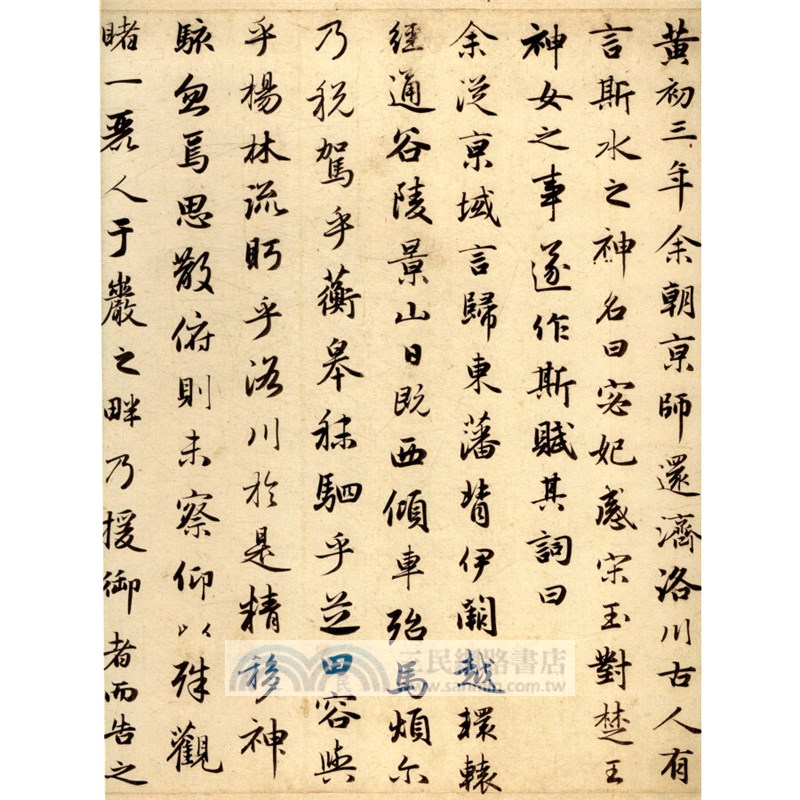 黃初三年余朝京師還濟洛川古人有
言斯水之神名曰宓妃感宋玉對楚王
神女之事遂作斯賦其詞曰
余從京域言歸東藩背伊闕越轘轅
經通谷陵景山日既西傾車殆馬煩尔
乃稅駕乎蘅皋秣駟乎芝田容與
乎楊林流眄乎洛川於是精移神
駭忽焉思散俯則未察仰以殊觀
睹一麗人于巖之畔乃援御者而告之
三民網路書店
www.sanmin.com.tw